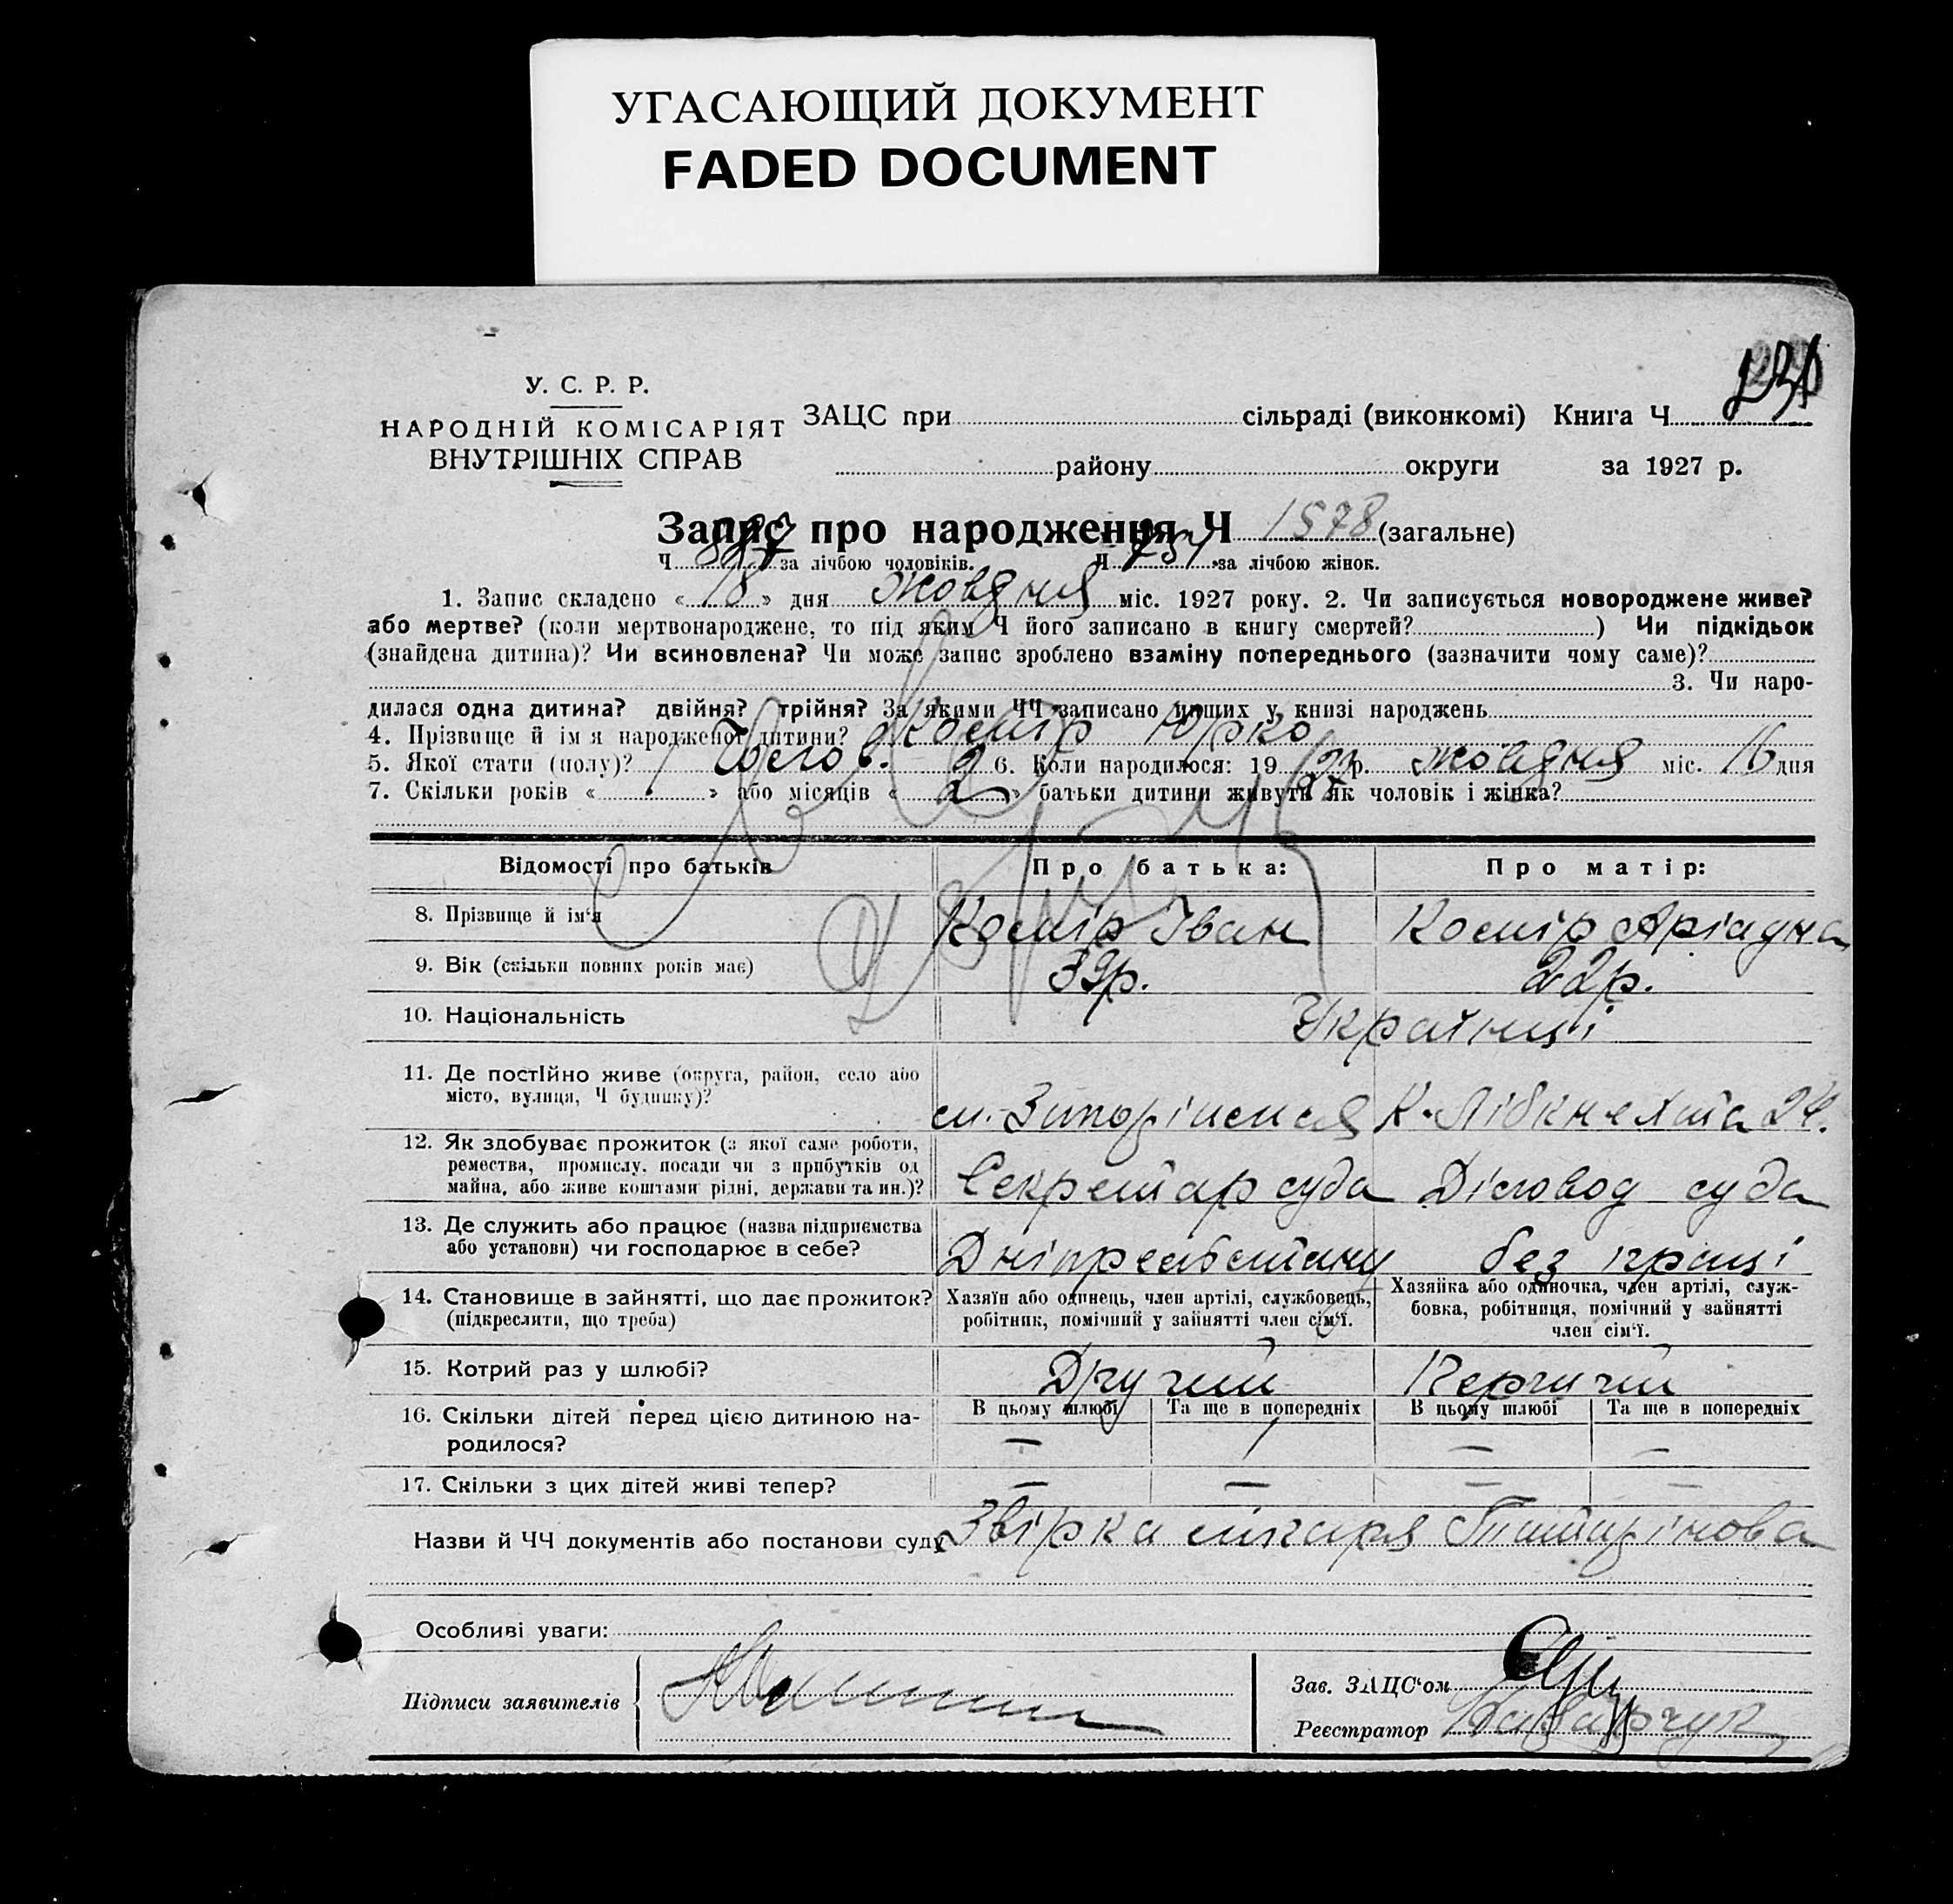 УГАСАЮЩИЙ ДОКУМЕНТ
FADED DOCUMENT
У. С. Р. Р.
НАРОДНІЙ КОМІСАРІЯТ
ВНУТРІШНІХ СПРАВ
ЗАЦС при сільраді (виконкомі) Книга Ч
району округи за 1927 р.
Запис про народження Ч 1578 (загальне)
Ч за лічбою чоловіків. Ч 751 за лічбою жінок.
1. Запис складено « 18 » дня жовдня міс. 1927 року. 2. Чи записується новороджене живе?
або мертве? (коли мертвонароджене, то під яким Ч його записано в книгу смертей? ) Чи підкідьок
(знайдена дитина)? Чи всиновлена? Чи може запис зроблено взаміну попереднього (зазначити чому саме)?
3. Чи наро-
дилася одна дитина? двійня? трійня? За якими ЧЧ записано инших у книзі народжень
4. Прізвище й ім я народженої дитини? Космір Юрко
5. Якої стати (полу)? Чолов. 6. Коли народилося: 19 27 р. жовдня міс. 16 дня
7. Скільки років « » або місяців « 2 » батьки дитини живуть як чоловік і жінка?
Відомості про батьків Про батька: Про матір:
8. Прізвище й ім'я Космір Іван Космір Аріадна
9. Вік (скільки повних років має) 39р. 22р.
10. Національність Українці
11. Де постІйно живе (округа, район, село або
місто, вулиця, Ч будинку)? К. Лібкнехта 24.
12. Як здобуває прожиток (з якої саме роботи,
ремества, промислу, посади чи з прибутків од
майна, або живе коштами рідні, держави та ин.)? Секретар суда Діловод суда
13. Де служить або працює (назва підприємства
або установи) чи господарює в себе? без праці
14. Становище в зайнятті, що дає прожиток?
(підкреслити, що треба)
Хазяїн або одинець, член артілі, службовець,
робітник, помічний у зайнятті член сім'ї.
Хазяйка або одиночка, член артілі, служ-
бовка, робітниця, помічний у зайнятті
член сім'ї.
15. Котрий раз у шлюбі? Другий Перший
16. Скільки дітей перед цією дитиною на-
родилося?
В цьому шлюбі Та ще в попередніх В цьому шлюбі Та ще в попередніх
— 1 — —
17. Скільки з цих дітей живі тепер? — — — —
Назви й ЧЧ документів або постанови суду Звірка лікаря
Особливі уваги:
Підписи заявителів
Зав. ЗАЦС'ом
Реєстратор